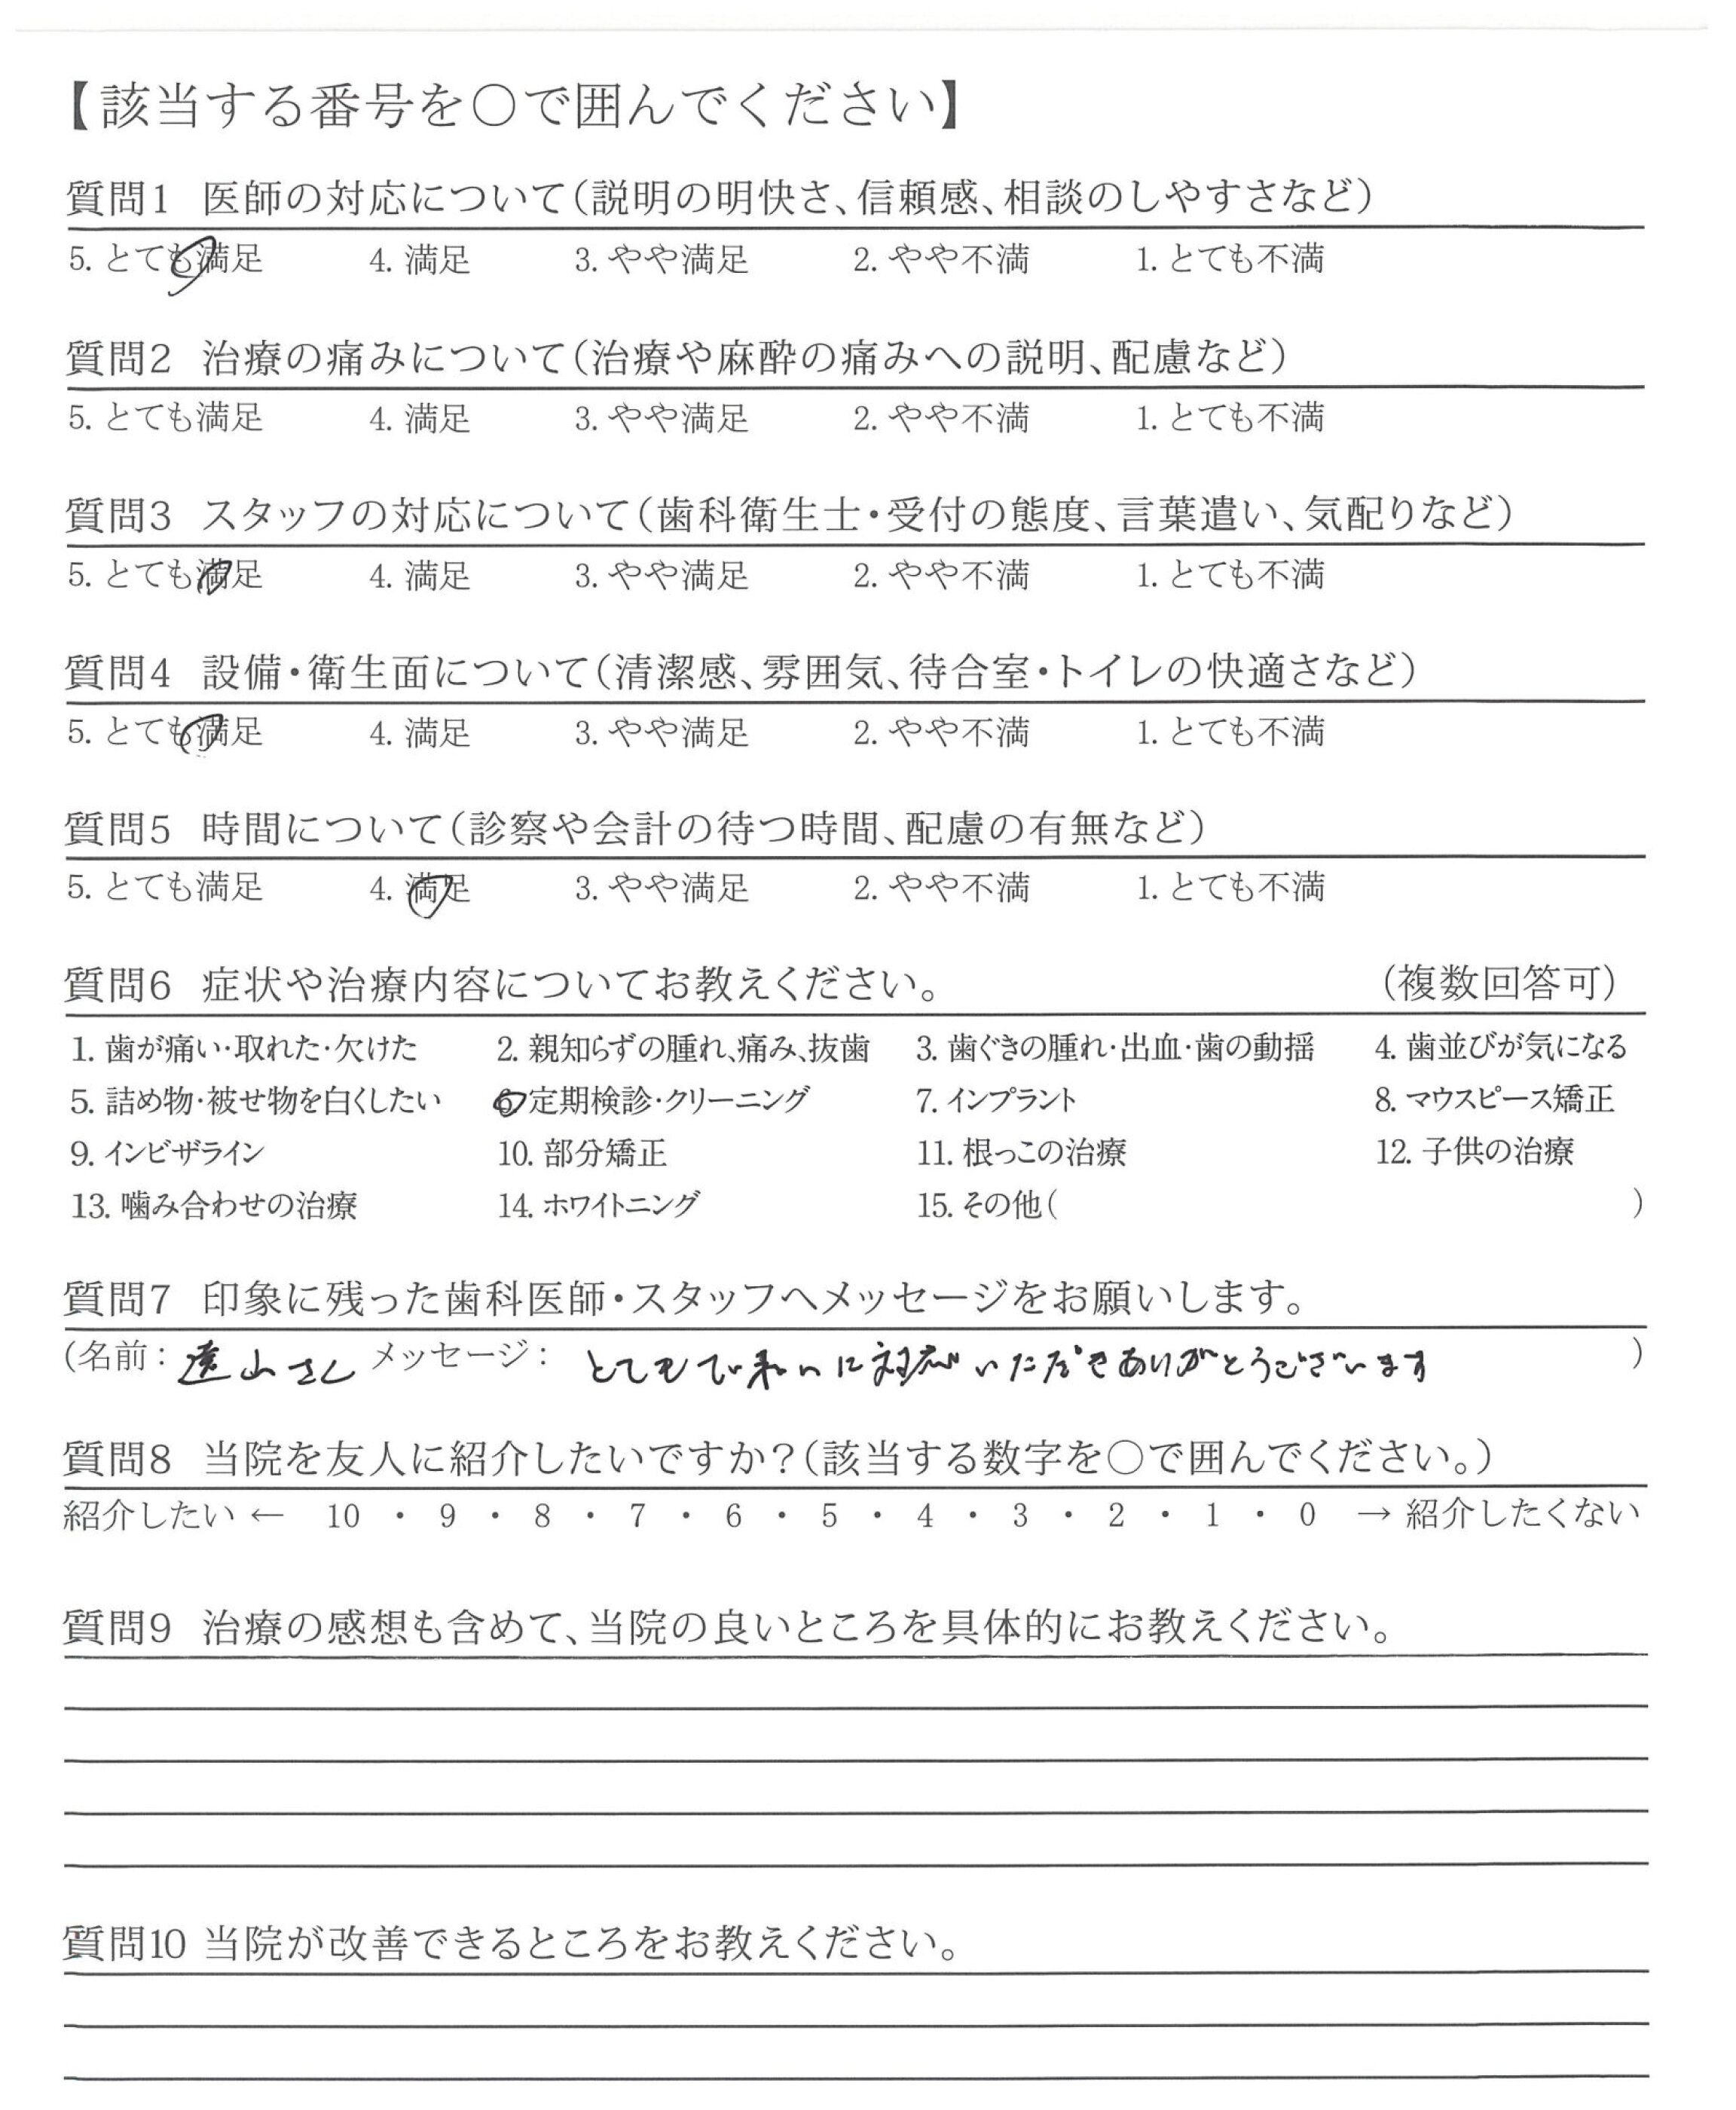 【該当する番号を〇で囲んでください】
質問1 医師の対応について(説明の明快さ、信頼感、相談のしやすさなど)
5. とても満足 4. 満足 3. やや満足 2. やや不満 1. とても不満
質問2 治療の痛みについて(治療や麻酔の痛みへの説明、配慮など)
5. とても満足 4. 満足 3. やや満足 2. やや不満 1. とても不満
質問3 スタッフの対応について(歯科衛生士・受付の態度、言葉遣い、気配りなど)
5. とても満足 4. 満足 3. やや満足 2. やや不満 1. とても不満
質問4 設備・衛生面について(清潔感、雰囲気、待合室・トイレの快適さなど)
5. とても満足 4. 満足 3. やや満足 2. やや不満 1. とても不満
質問5 時間について(診察や会計の待つ時間、配慮の有無など)
5. とても満足 4. 満足 3. やや満足 2. やや不満 1. とても不満
質問6 症状や治療内容についてお教えください。 (複数回答可)
1. 歯が痛い・取れた・欠けた 2. 親知らずの腫れ、痛み、抜歯 3. 歯ぐきの腫れ・出血・歯の動揺 4. 歯並びが気になる
5. 詰め物・被せ物を白くしたい 6. 定期検診・クリーニング 7. インプラント 8. マウスピース矯正
9. インビザライン 10. 部分矯正 11. 根っこの治療 12. 子供の治療
13. 噛み合わせの治療 14. ホワイトニング 15. その他( )
質問7 印象に残った歯科医師・スタッフへメッセージをお願いします。
(名前: 遠山さん メッセージ: とてもていねいに対応いただきありがとうございます )
質問8 当院を友人に紹介したいですか?(該当する数字を〇で囲んでください。)
紹介したい ← 10 ・ 9 ・ 8 ・ 7 ・ 6 ・ 5 ・ 4 ・ 3 ・ 2 ・ 1 ・ 0 → 紹介したくない
質問9 治療の感想も含めて、当院の良いところを具体的にお教えください。
質問10 当院が改善できるところをお教えください。